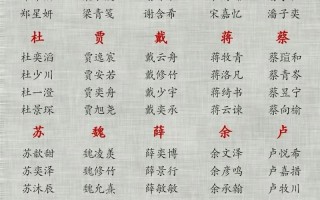 郑星妍 梁青笺 谢含希 宋嘉忆 潘子奕
杜 贾 戴 蒋 蔡
杜奕滔 贾逸宸 戴云舟 蒋牧青 蔡瑄和
杜少川 贾安若 戴修竹 蒋洛凡 蔡青岑
杜一澄 贾奕舟 戴少宇 蒋绮书 蔡昱宁
杜景琛 贾旭尧 戴奕承 蒋云谏 蔡向榆
苏 魏 薛 余 卢
苏歆甜 魏凌羡 薛奕博 余文泽 卢悦希
苏奕泽 魏修竹 薛景行 余彦鸣 卢嘉措
苏沐辰 魏允熹 薛敏敏 余承翰 卢牧川